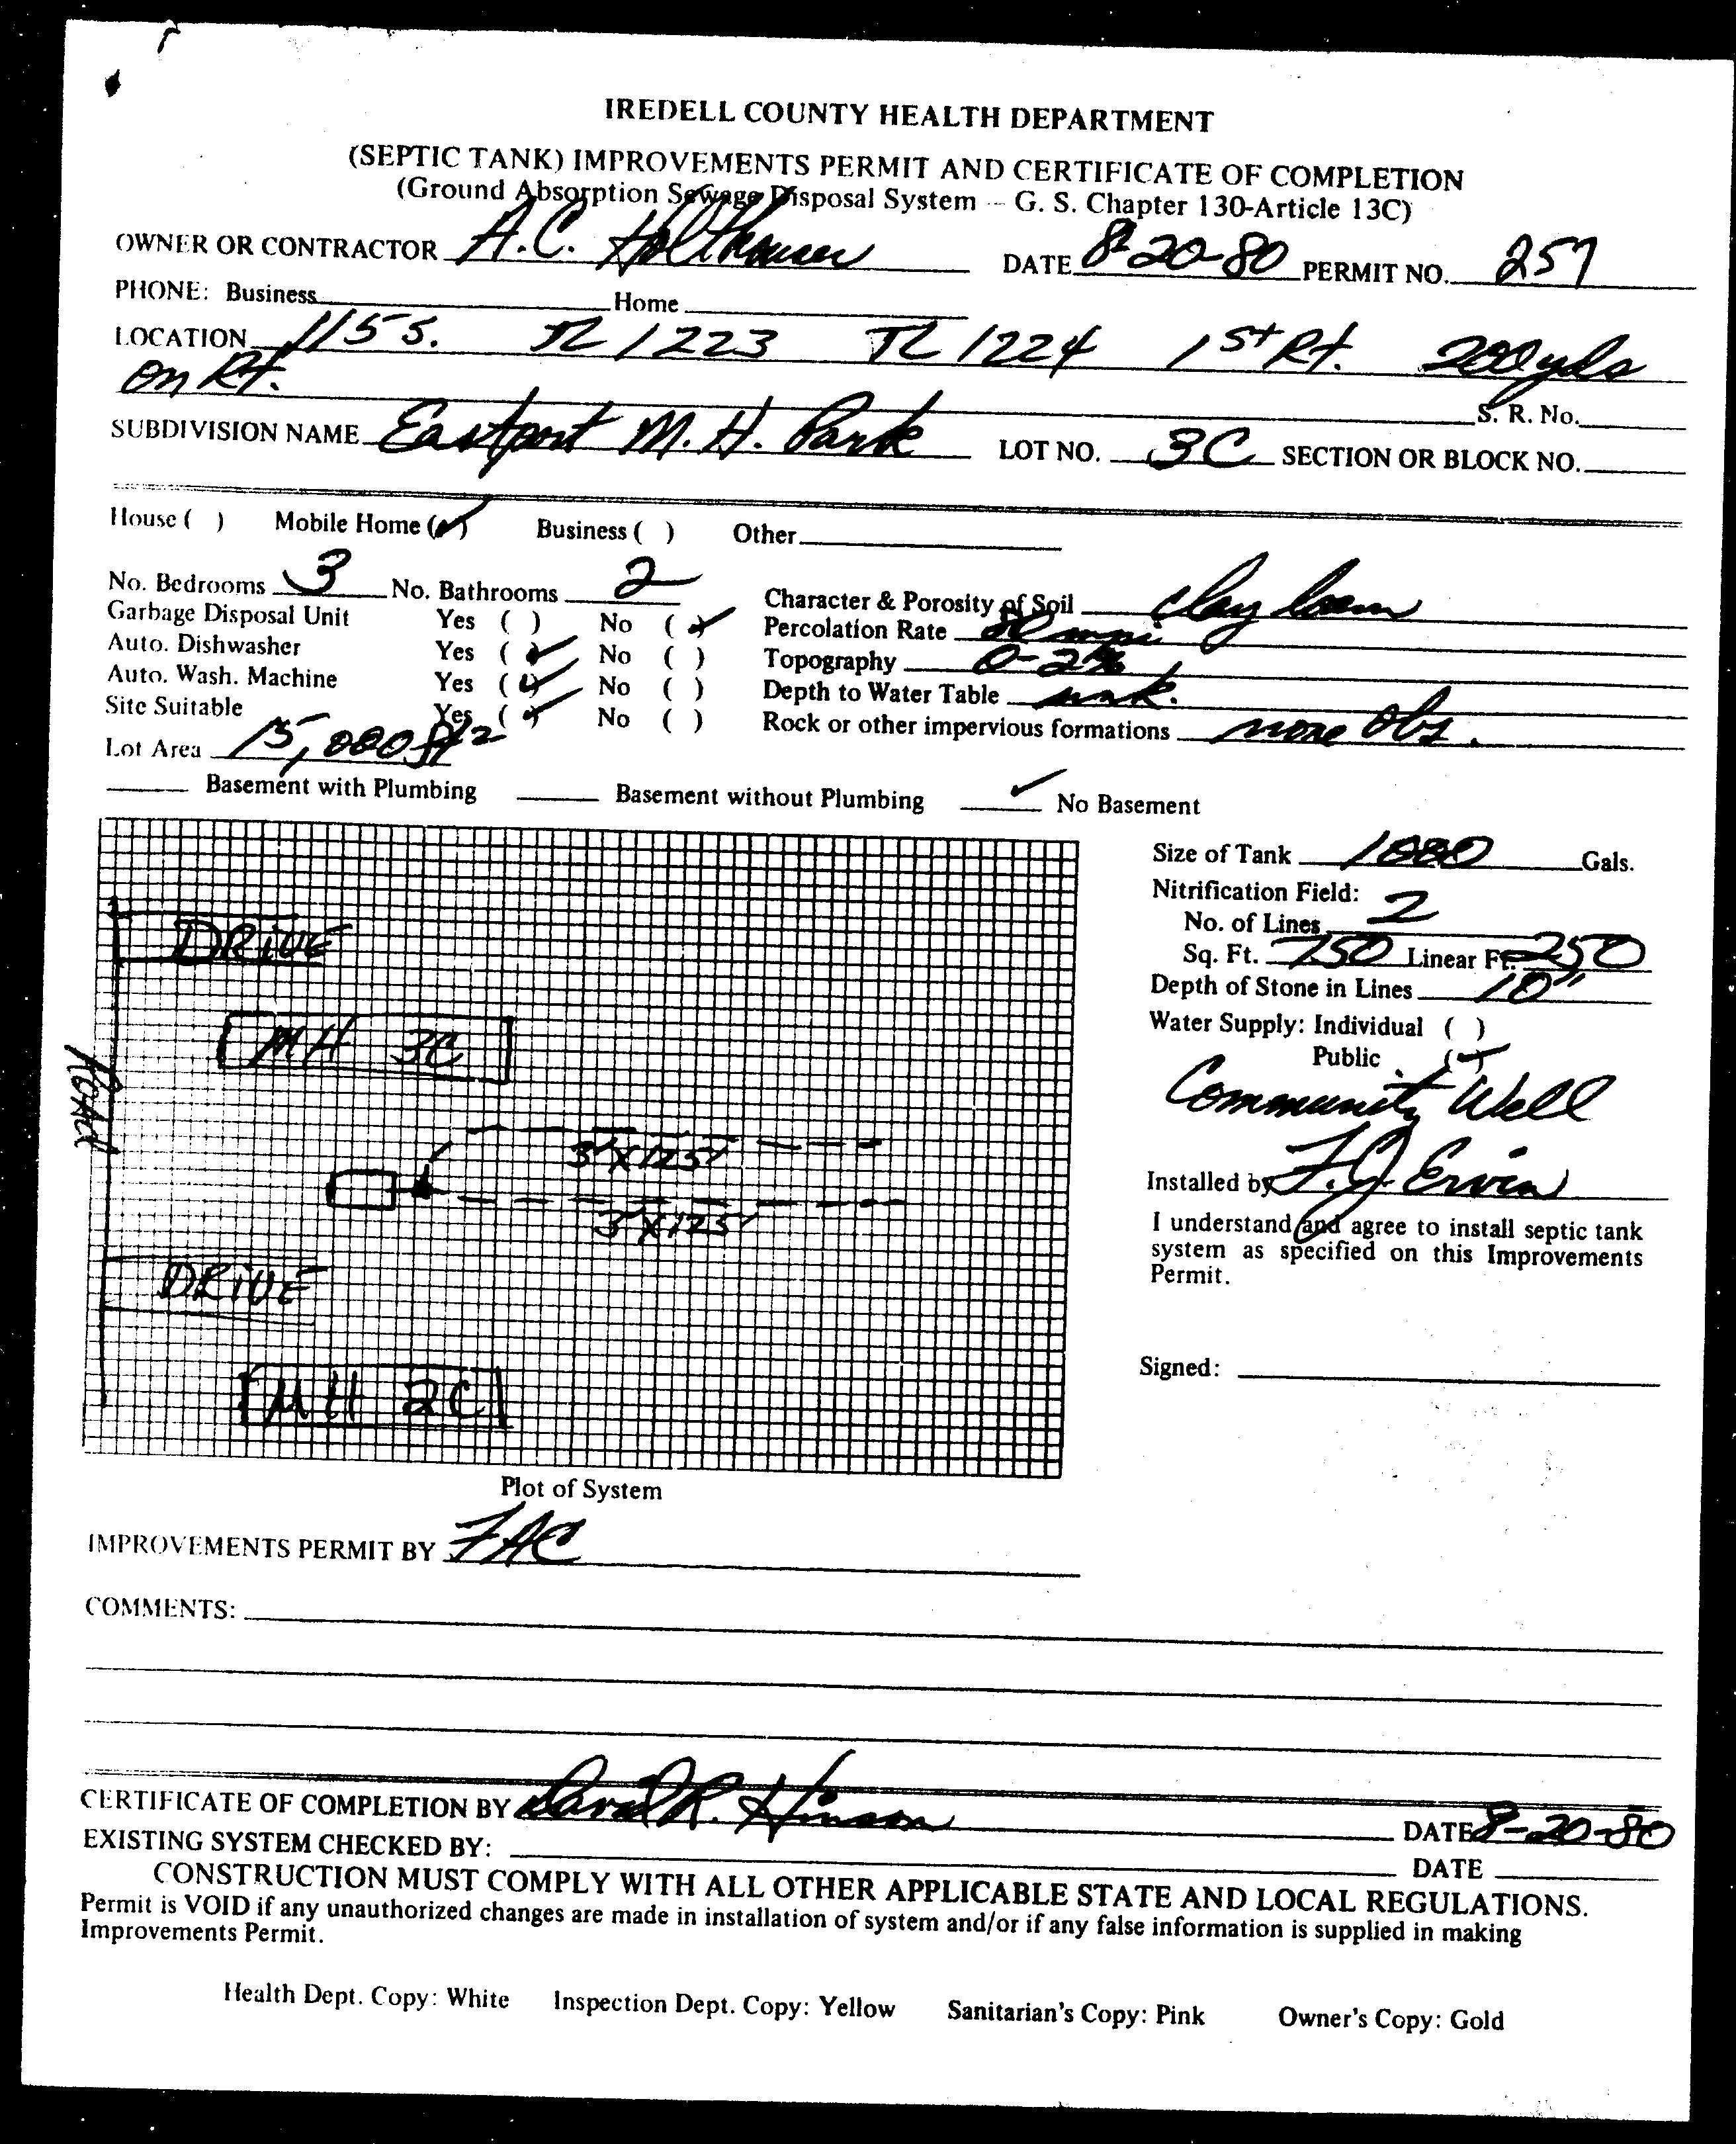 IREDELL COUNTY HEALTH DEPARTMENT
(SEPTIC TANK) IMPROVEMENTS PERMIT AND CERTIFICATE OF COMPLETION
(Ground Absorption Sewage Disposal System - G. S. Chapter 130-Article 13C)
OWNER OR CONTRACTOR A.C. Holthouser DATE 8-20-80 PERMIT NO. 257
PHONE: Business Home
LOCATION 115 S. TL 1223 TL 1224 1st Rt. 200 yds
on Rt.
S. R. No.
SUBDIVISION NAME Eastport M. H. Park LOT NO. 3C SECTION OR BLOCK NO.
House ( ) Mobile Home (✓) Business ( ) Other
No. Bedrooms 3 No. Bathrooms 2 Character & Porosity of Soil clay loam
Garbage Disposal Unit Yes ( ) No (✓) Percolation Rate 80 mpi
Auto. Dishwasher Yes (✓) No ( ) Topography 0-2%
Auto. Wash. Machine Yes (✓) No ( ) Depth to Water Table unk.
Site Suitable Yes (✓) No ( ) Rock or other impervious formations none Obs.
Lot Area 15,000 ft2
Basement with Plumbing Basement without Plumbing ✓ No Basement
Size of Tank 1000 Gals.
Nitrification Field:
No. of Lines 2
Sq. Ft. 750 Linear Ft. 250
Depth of Stone in Lines 10"
Water Supply: Individual ( )
Public (✓)
Community Well
Installed by F.J. Ervin
I understand and agree to install septic tank
system as specified on this Improvements
Permit.
Signed:
DRIVE
MH 3C
ROAD
3'X125'
3'X125'
DRIVE
MH 2C
Plot of System
IMPROVEMENTS PERMIT BY FAC
COMMENTS:
CERTIFICATE OF COMPLETION BY David R. Hinson DATE 8-20-80
EXISTING SYSTEM CHECKED BY: DATE
CONSTRUCTION MUST COMPLY WITH ALL OTHER APPLICABLE STATE AND LOCAL REGULATIONS.
Permit is VOID if any unauthorized changes are made in installation of system and/or if any false information is supplied in making
Improvements Permit.
Health Dept. Copy: White Inspection Dept. Copy: Yellow Sanitarian's Copy: Pink Owner's Copy: Gold